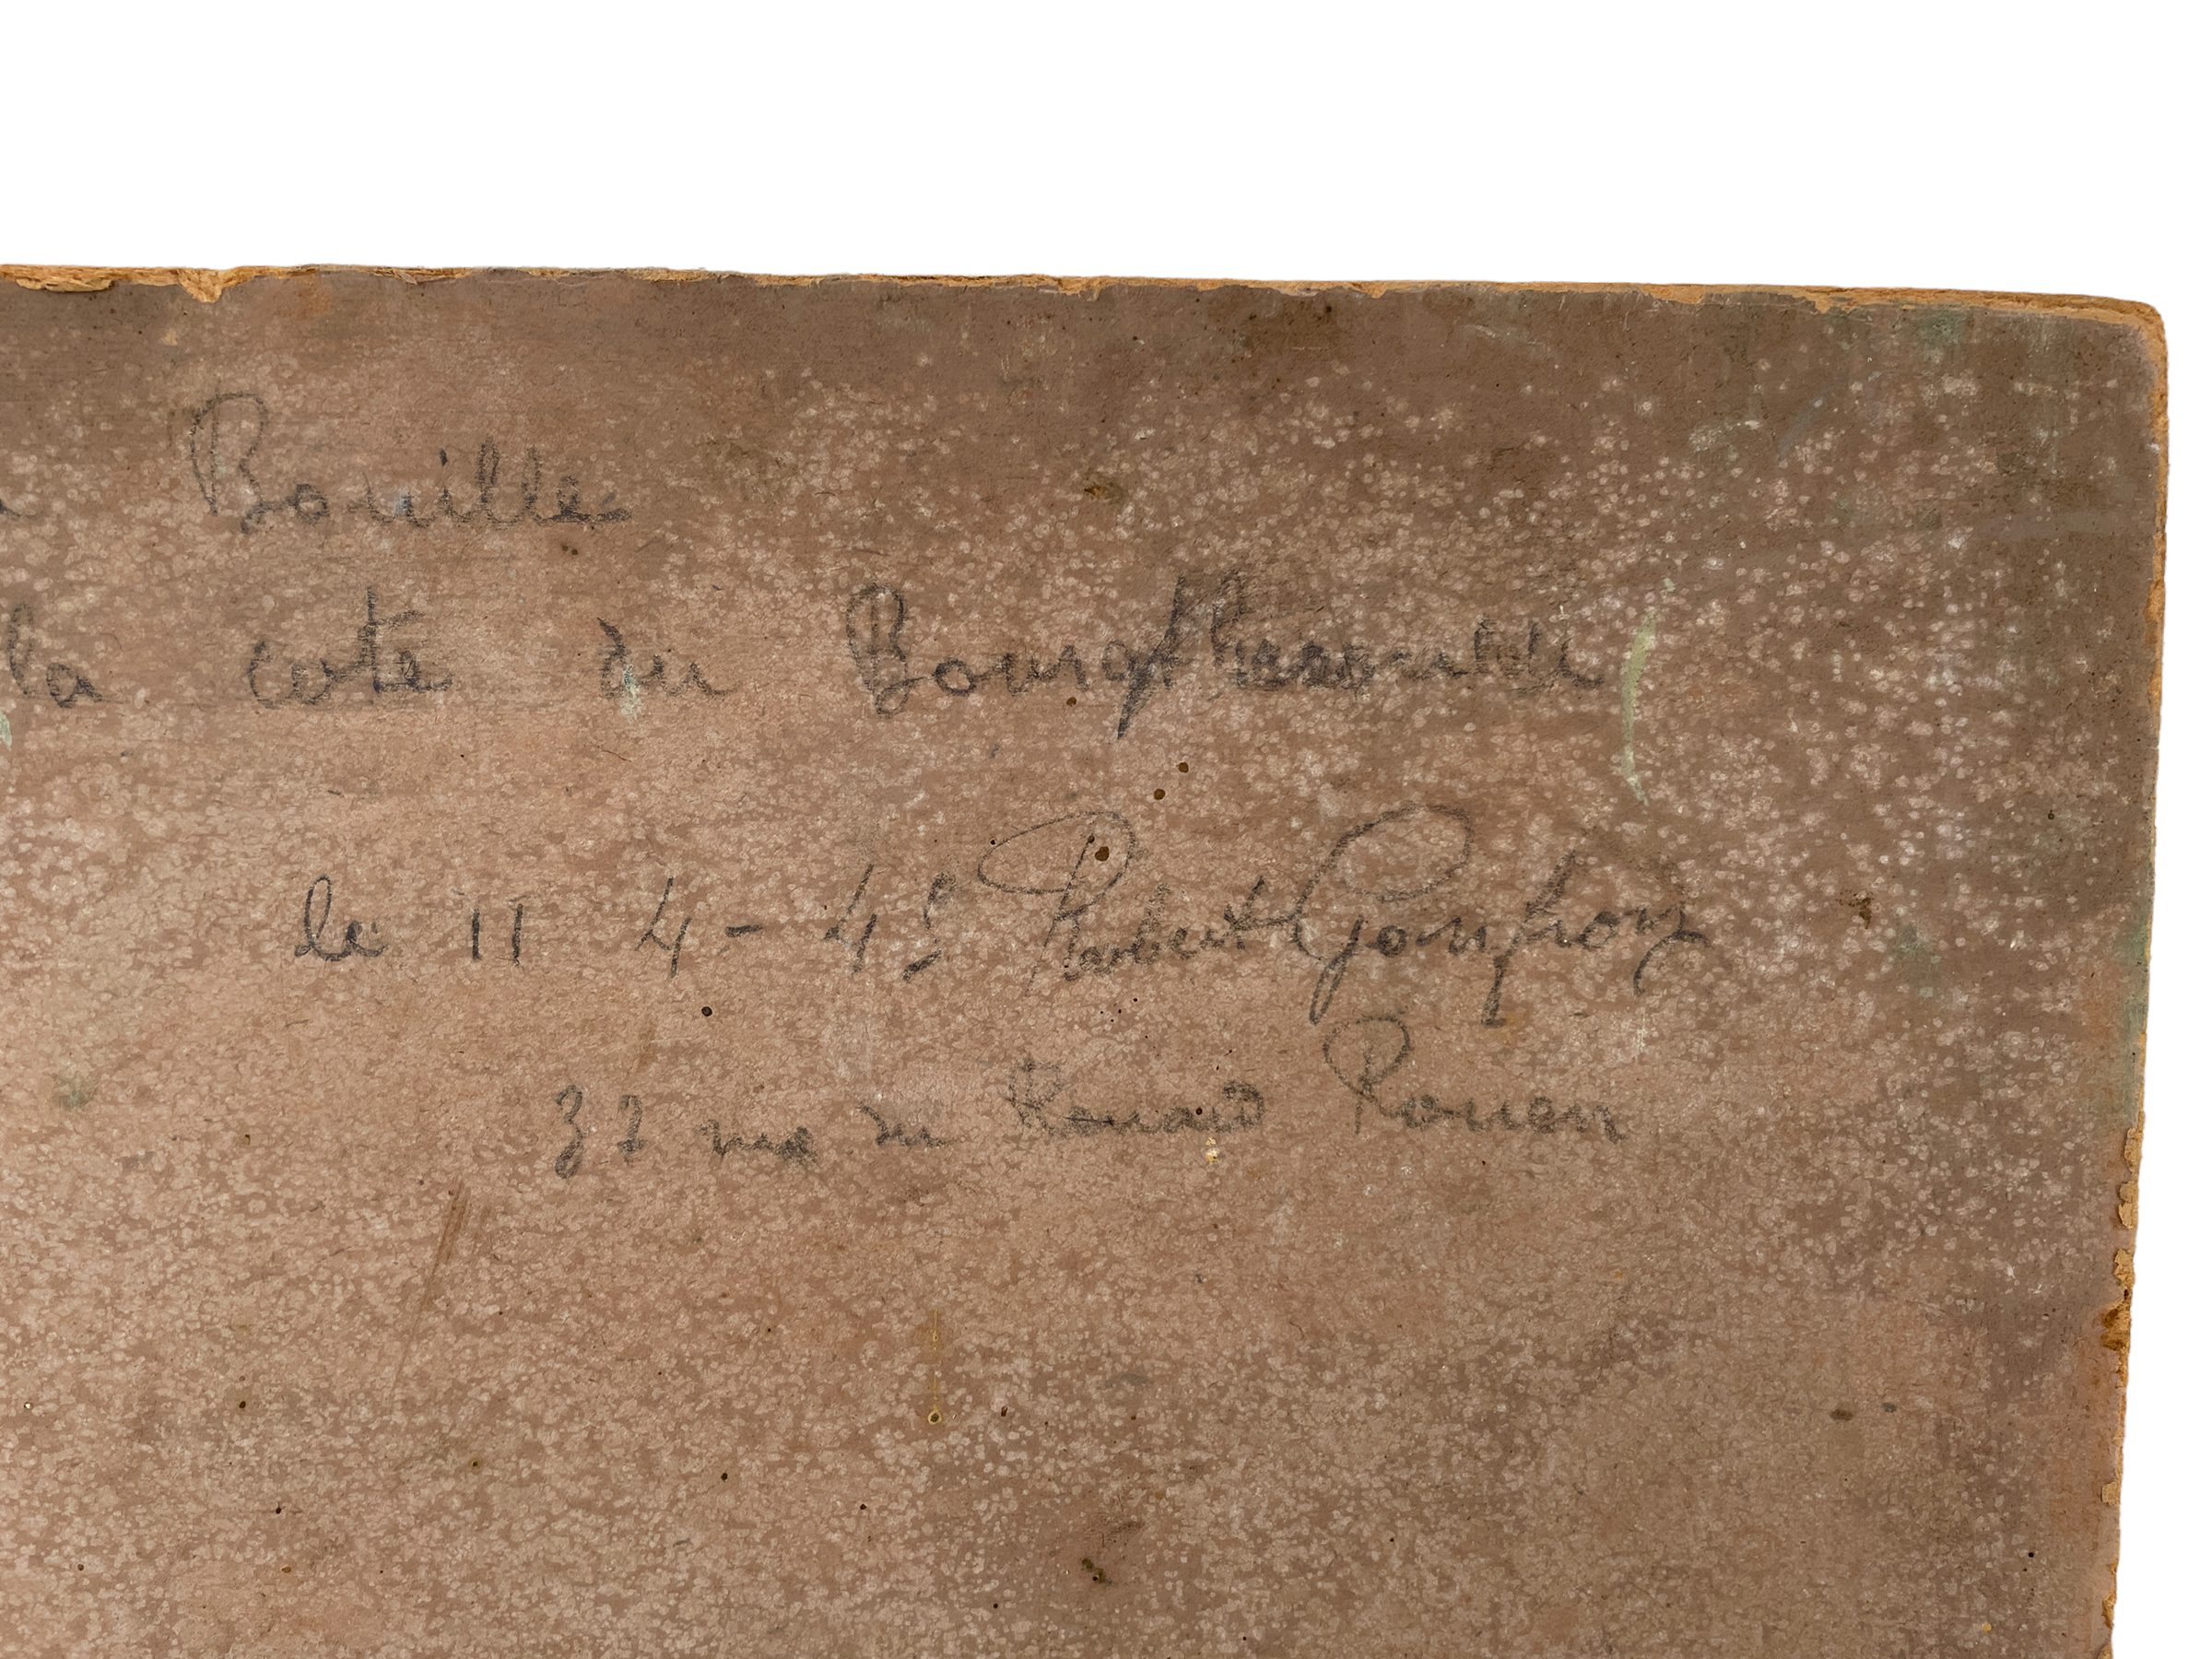 a Bouille
la cote du Bourgtheroulde
le 11 4 - 45 Robert Gonfroy
32 rue du Renard Rouen